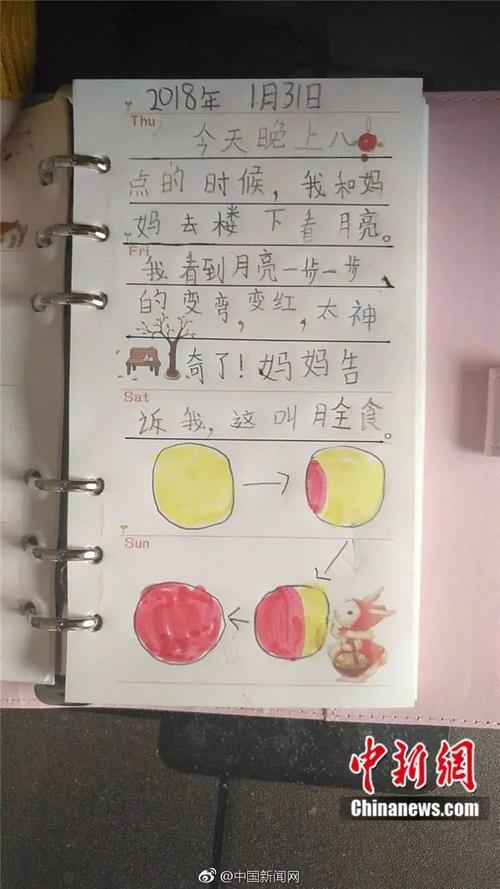 2018年 1月31日
Thu
今天晚上八
点的时候，我和妈
妈去楼下看月亮。
Fri
我看到月亮一步一步
的变弯，变红，太神
奇了！妈妈告
Sat
诉我，这叫月全食。
Sun
中新网
Chinanews.com
@中国新闻网